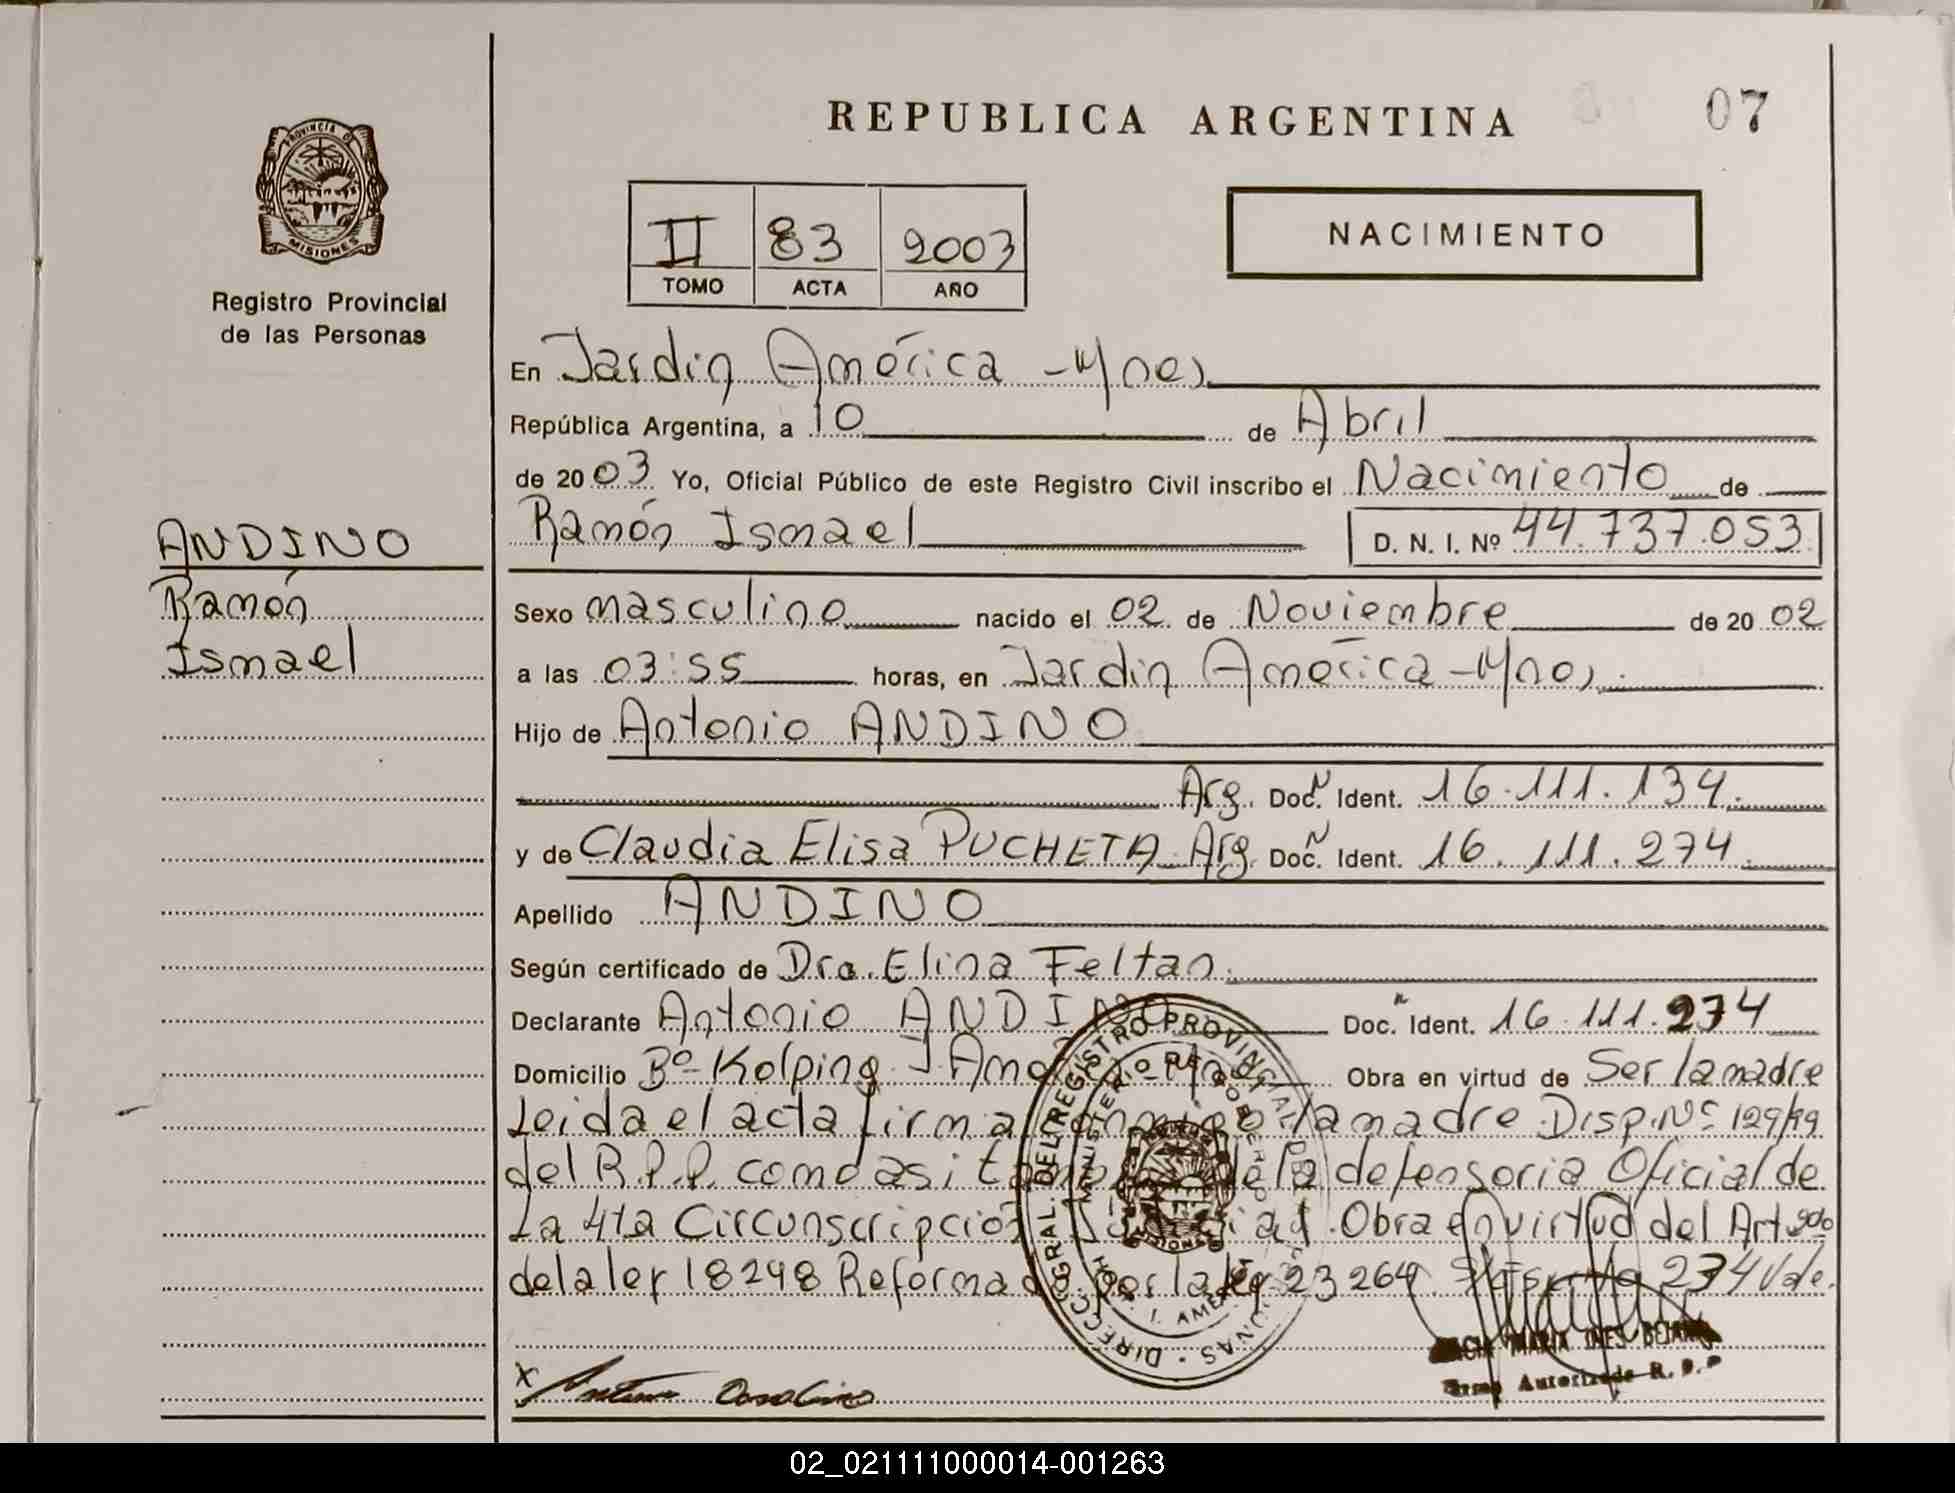 REPUBLICA ARGENTINA
07
PROVINCIA DE
MISIONES
Registro Provincial
de las Personas
II 83 2003
TOMO ACTA AÑO
NACIMIENTO
En Jardín América -Mnes
República Argentina, a 10 de Abril
de 20 03 Yo, Oficial Público de este Registro Civil inscribo el Nacimiento de
Ramón Ismael D. N. I. Nº 44.737.053
ANDINO
Ramón
Ismael
Sexo masculino nacido el 02 de Noviembre de 20 02
a las 03:55 horas, en Jardin América -Mnes
Hijo de Antonio ANDINO
Arg. Doc. N Ident. 16.111.134.
y de Claudia Elisa PUCHETA Arg. Doc. N Ident. 16.111.274
Apellido ANDINO
Según certificado de Dra. Elina Feltan
Declarante Antonio ANDINO Doc. Ident. 16.111.274
Domicilio Bº Kolping Obra en virtud de Ser la madre
Leida el acta firma la madre Disp. Nº 129/99
del R.P.P. como asi de la defensoria Oficial de
La 4ta Circunscripción Obra en virtud del Art
de la ley 18248 Reformad por la ley 23264 274 Vale.
DIRECC. GRAL. DEL REGISTRO PROVINCIAL DE
MINISTERIO
MARIA INES
Firma Autorizada R. P. P.
02_021111000014-001263